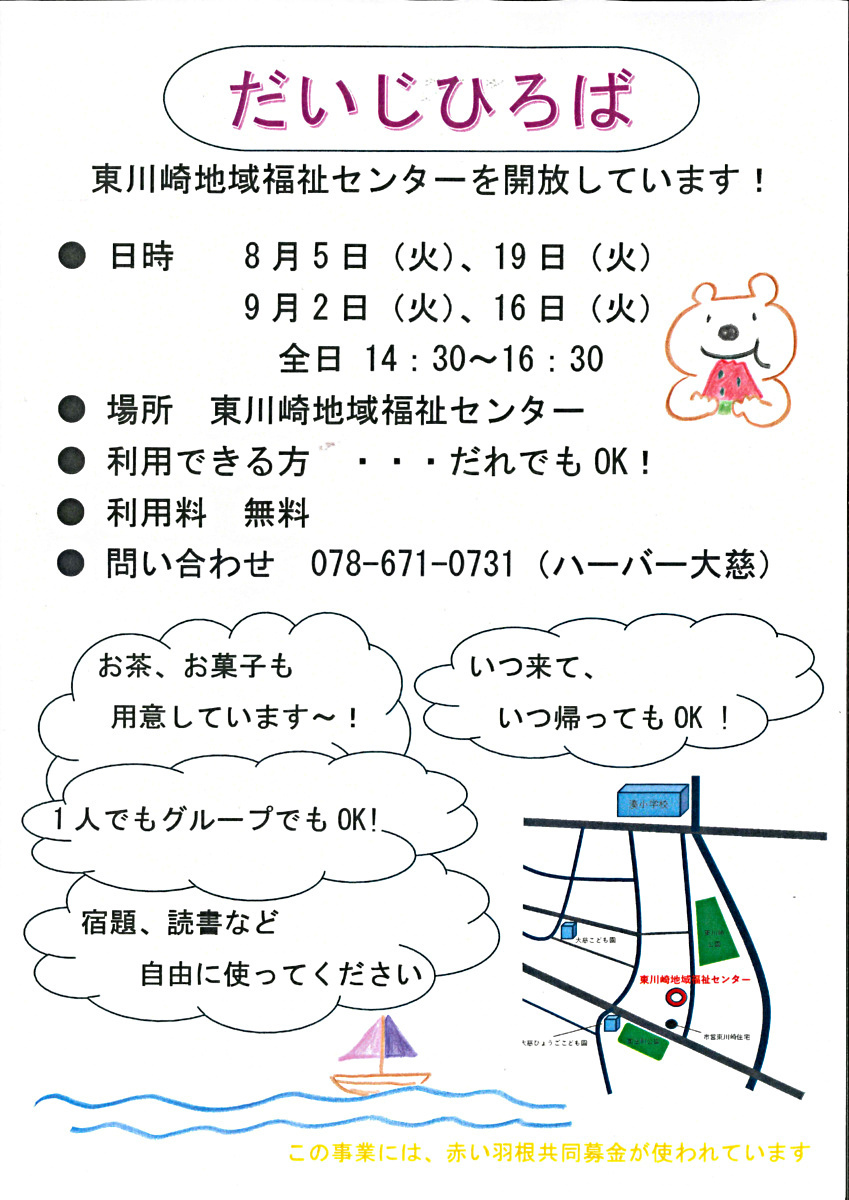 だいじひろば
東川崎地域福祉センターを開放しています！
● 日時　8月5日（火）、19日（火）
9月2日（火）、16日（火）
全日 14：30～16：30
● 場所　東川崎地域福祉センター
● 利用できる方　・・・だれでもOK！
● 利用料　無料
● 問い合わせ　078-671-0731（ハーバー大慈）
お茶、お菓子も
用意しています～！
いつ来て、
いつ帰ってもOK！
1人でもグループでもOK!
宿題、読書など
自由に使ってください
湊小学校
大慈こども園
東川崎
公園
東川崎地域福祉センター
市営東川崎住宅
大慈ひょうごこども園
この事業には、赤い羽根共同募金が使われています